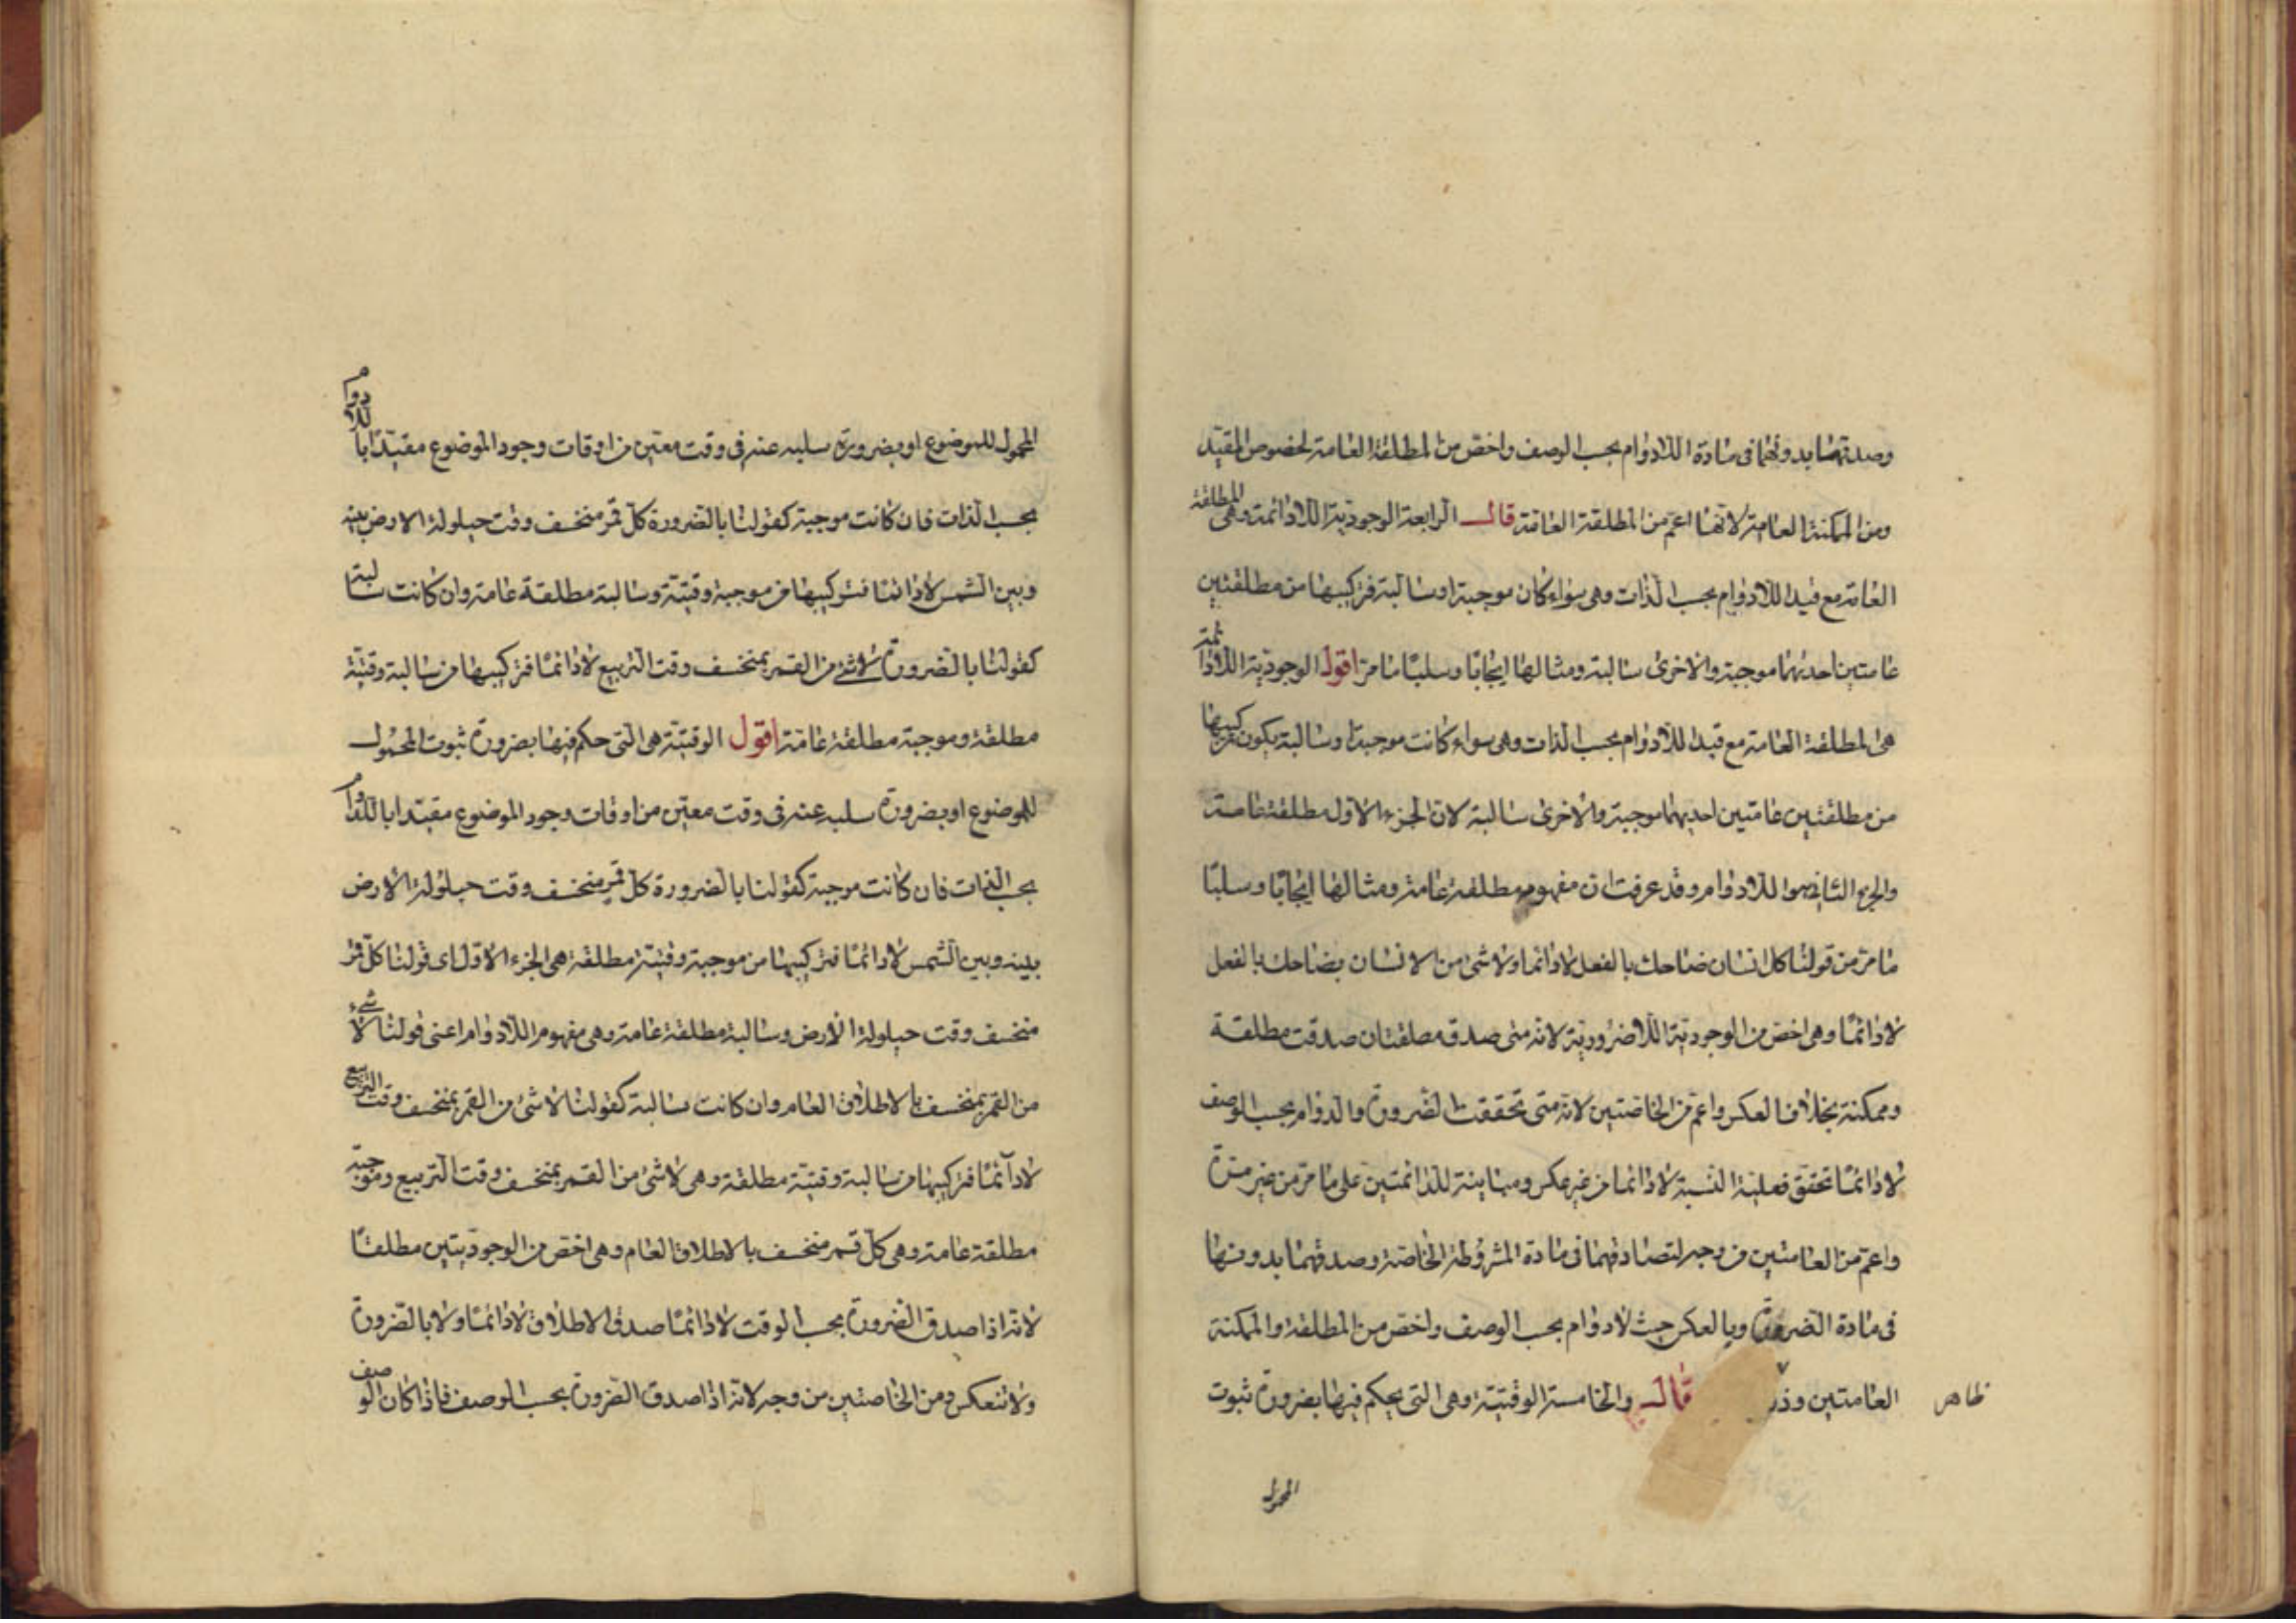 وصدقهما بدونها فى مادة اللادوام بحسب الوصف واخص من المطلقة العامة لخصوص المقيد
ومن الممكنة العامة لانها اعم من المطلقة العامة قال الرابعة الوجودية اللادائمة وهى المطلقة
العامة مع قيد اللادوام بحسب الذات وهى سواء كان موجبة او سالبة فتركيبها من مطلقتين
عامتين احديهما موجبة والاخرى سالبة ومثالها ايجابًا وسلبًا ما مر اقول الوجودية اللادائمة
هى المطلقة العامة مع قيد اللادوام بحسب الذات وهى سواء كانت موجبة او سالبة يكون تركيبها
من مطلقتين عامتين احديهما موجبة والاخرى سالبة لان الجزء الاول مطلقة عامة
والجزء الثانى هو اللادوام وقد عرفت ان مفهومه مطلقة عامة ومثالها ايجابًا وسلبًا
ما مر من قولنا كل انسان ضاحك بالفعل لادائما ولاشئ من الانسان بضاحك بالفعل
لادائمًا وهى اخص من الوجودية اللاضرورية لانه متى صدق مطلقتان صدقت مطلقة
وممكنة بخلاف العكس واعم من الخاصتين لانه متى تحققت الضرورة والدوام بحسب الوصف
لادائمًا تحقق فعلية النسبة لادائما من غير عكس ومباينة للدائمتين على ما مر من غير مرة
واعم من العامتين من وجه لتصادقهما فى مادة المشروطة الخاصة وصدقهما بدونها
فى مادة الضرورة وبالعكس حيث لادوام بحسب الوصف واخص من المطلقة والممكنة
العامتين وذ قال والخامسة الوقتية وهى التى يحكم فيها بضرورة ثبوت
ظاهر
المحمول
المحمول للموضوع او بضرورة سلبه عنه فى وقت معين من اوقات وجود الموضوع مقيدًا باللادوام
بحسب الذات فان كانت موجبة كقولنا بالضرورة كل قمر منخسف وقت حيلولة الارض بينه
وبين الشمس لادائمًا فتركيبها من موجبة وقتية وسالبة مطلقة عامة وان كانت سالبة
كقولنا بالضرورة لاشئ من القمر بمنخسف وقت التربيع لادائمًا فتركيبها من سالبة وقتية
مطلقة وموجبة مطلقة عامة اقول الوقتية هى التى حكم فيها بضرورة ثبوت المحمول
للموضوع او بضرورة سلبه عنه فى وقت معين من اوقات وجود الموضوع مقيدا باللادوام
بحسب الذات فان كانت موجبة كقولنا بالضرورة كل قمر منخسف وقت حيلولة الارض
بينه وبين الشمس لادائمًا فتركيبها من موجبة وقتية مطلقة هى الجزء الاول اى قولنا كل قمر
منخسف وقت حيلولة الارض وسالبة مطلقة عامة وهى مفهوم اللادوام اعنى قولنا لا شىء
من القمر بمنخسف بالاطلاق العام وان كانت سالبة كقولنا لاشئ من القمر بمنخسف وقت التربيع
لادآئمًا فتركيبها من سالبة وقتية مطلقة وهى لاشئ من القمر بمنخسف وقت التربيع وموجبة
مطلقة عامة وهى كل قمر منخسف بالاطلاق العام وهى اخص من الوجوديتين مطلقًا
لانه اذا صدق الضرورة بحسب الوقت لادائمًا صدق الاطلاق لادائمًا ولا بالضرورة
ولا تنعكس ومن الخاصتين من وجه لانه اذا صدق الضرورة بحسب الوصف فاذا كان الوصف